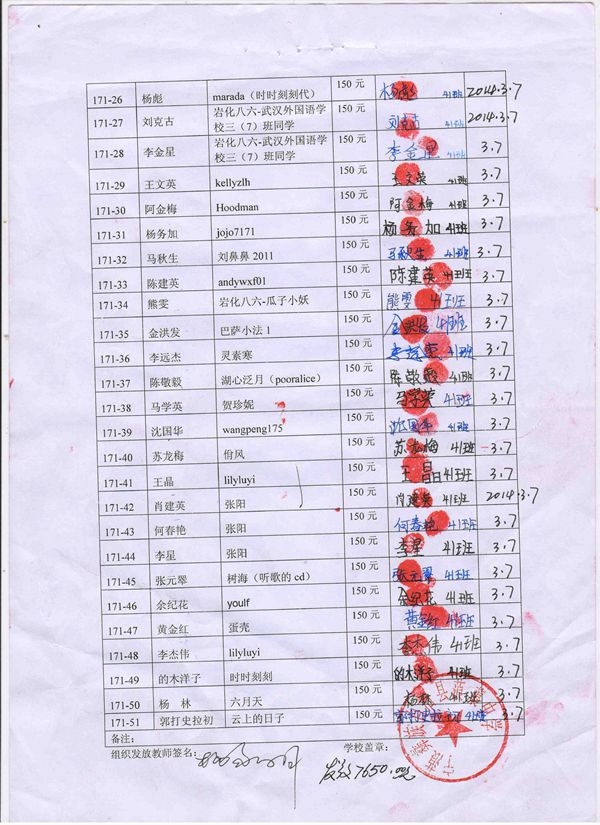 171-26 杨彪 marada（时时刻刻代） 150 元 杨彪 41班 2014.3.7
171-27 刘克古 岩化八六-武汉外国语学校三（7）班同学 150 元 刘克古 41班 2014.3.7
171-28 李金星 岩化八六-武汉外国语学校三（7）班同学 150 元 李金星 41班 3.7
171-29 王文英 kellyzlh 150 元 王文英 41班 3.7
171-30 阿金梅 Hoodman 150 元 阿金梅 41班 3.7
171-31 杨务加 jojo7171 150 元 杨务加 41班 3.7
171-32 马秋生 刘鼻鼻 2011 150 元 马秋生 41班 3.7
171-33 陈建英 andywxf01 150 元 陈建英 41班 3.7
171-34 熊雯 岩化八六-瓜子小妖 150 元 熊雯 41班 3.7
171-35 金洪发 巴萨小法 1 150 元 金洪发 41班 3.7
171-36 李远杰 灵素寒 150 元 41班 3.7
171-37 陈敬毅 湖心泛月（pooralice） 150 元 陈敬毅 41班 3.7
171-38 马学英 贺珍妮 150 元 马学英 41班 3.7
171-39 沈国华 wangpeng175 150 元 沈国华 41班 3.7
171-40 苏龙梅 佾风 150 元 苏龙梅 41班 3.7
171-41 王晶 lilyluyi 150 元 王晶 41班 3.7
171-42 肖建英 张阳 150 元 肖建英 41班 2014.3.7
171-43 何春艳 张阳 150 元 何春艳 41班 3.7
171-44 李星 张阳 150 元 李星 41班 3.7
171-45 张元翠 树海（听歌的 cd） 150 元 张元翠 41班 3.7
171-46 余纪花 youlf 150 元 余纪花 41班 3.7
171-47 黄金红 蛋壳 150 元 黄金红 41班 3.7
171-48 李杰伟 lilyluyi 150 元 李杰伟 41班 3.7
171-49 的木洋子 时时刻刻 150 元 的木洋子 41班 3.7
171-50 杨 林 六月天 150 元 杨林 41班 3.7
171-51 郭打史拉初 云上的日子 150 元 41班 3.7
备注：
组织发放教师签名： 学校盖章：
发放7650.00元